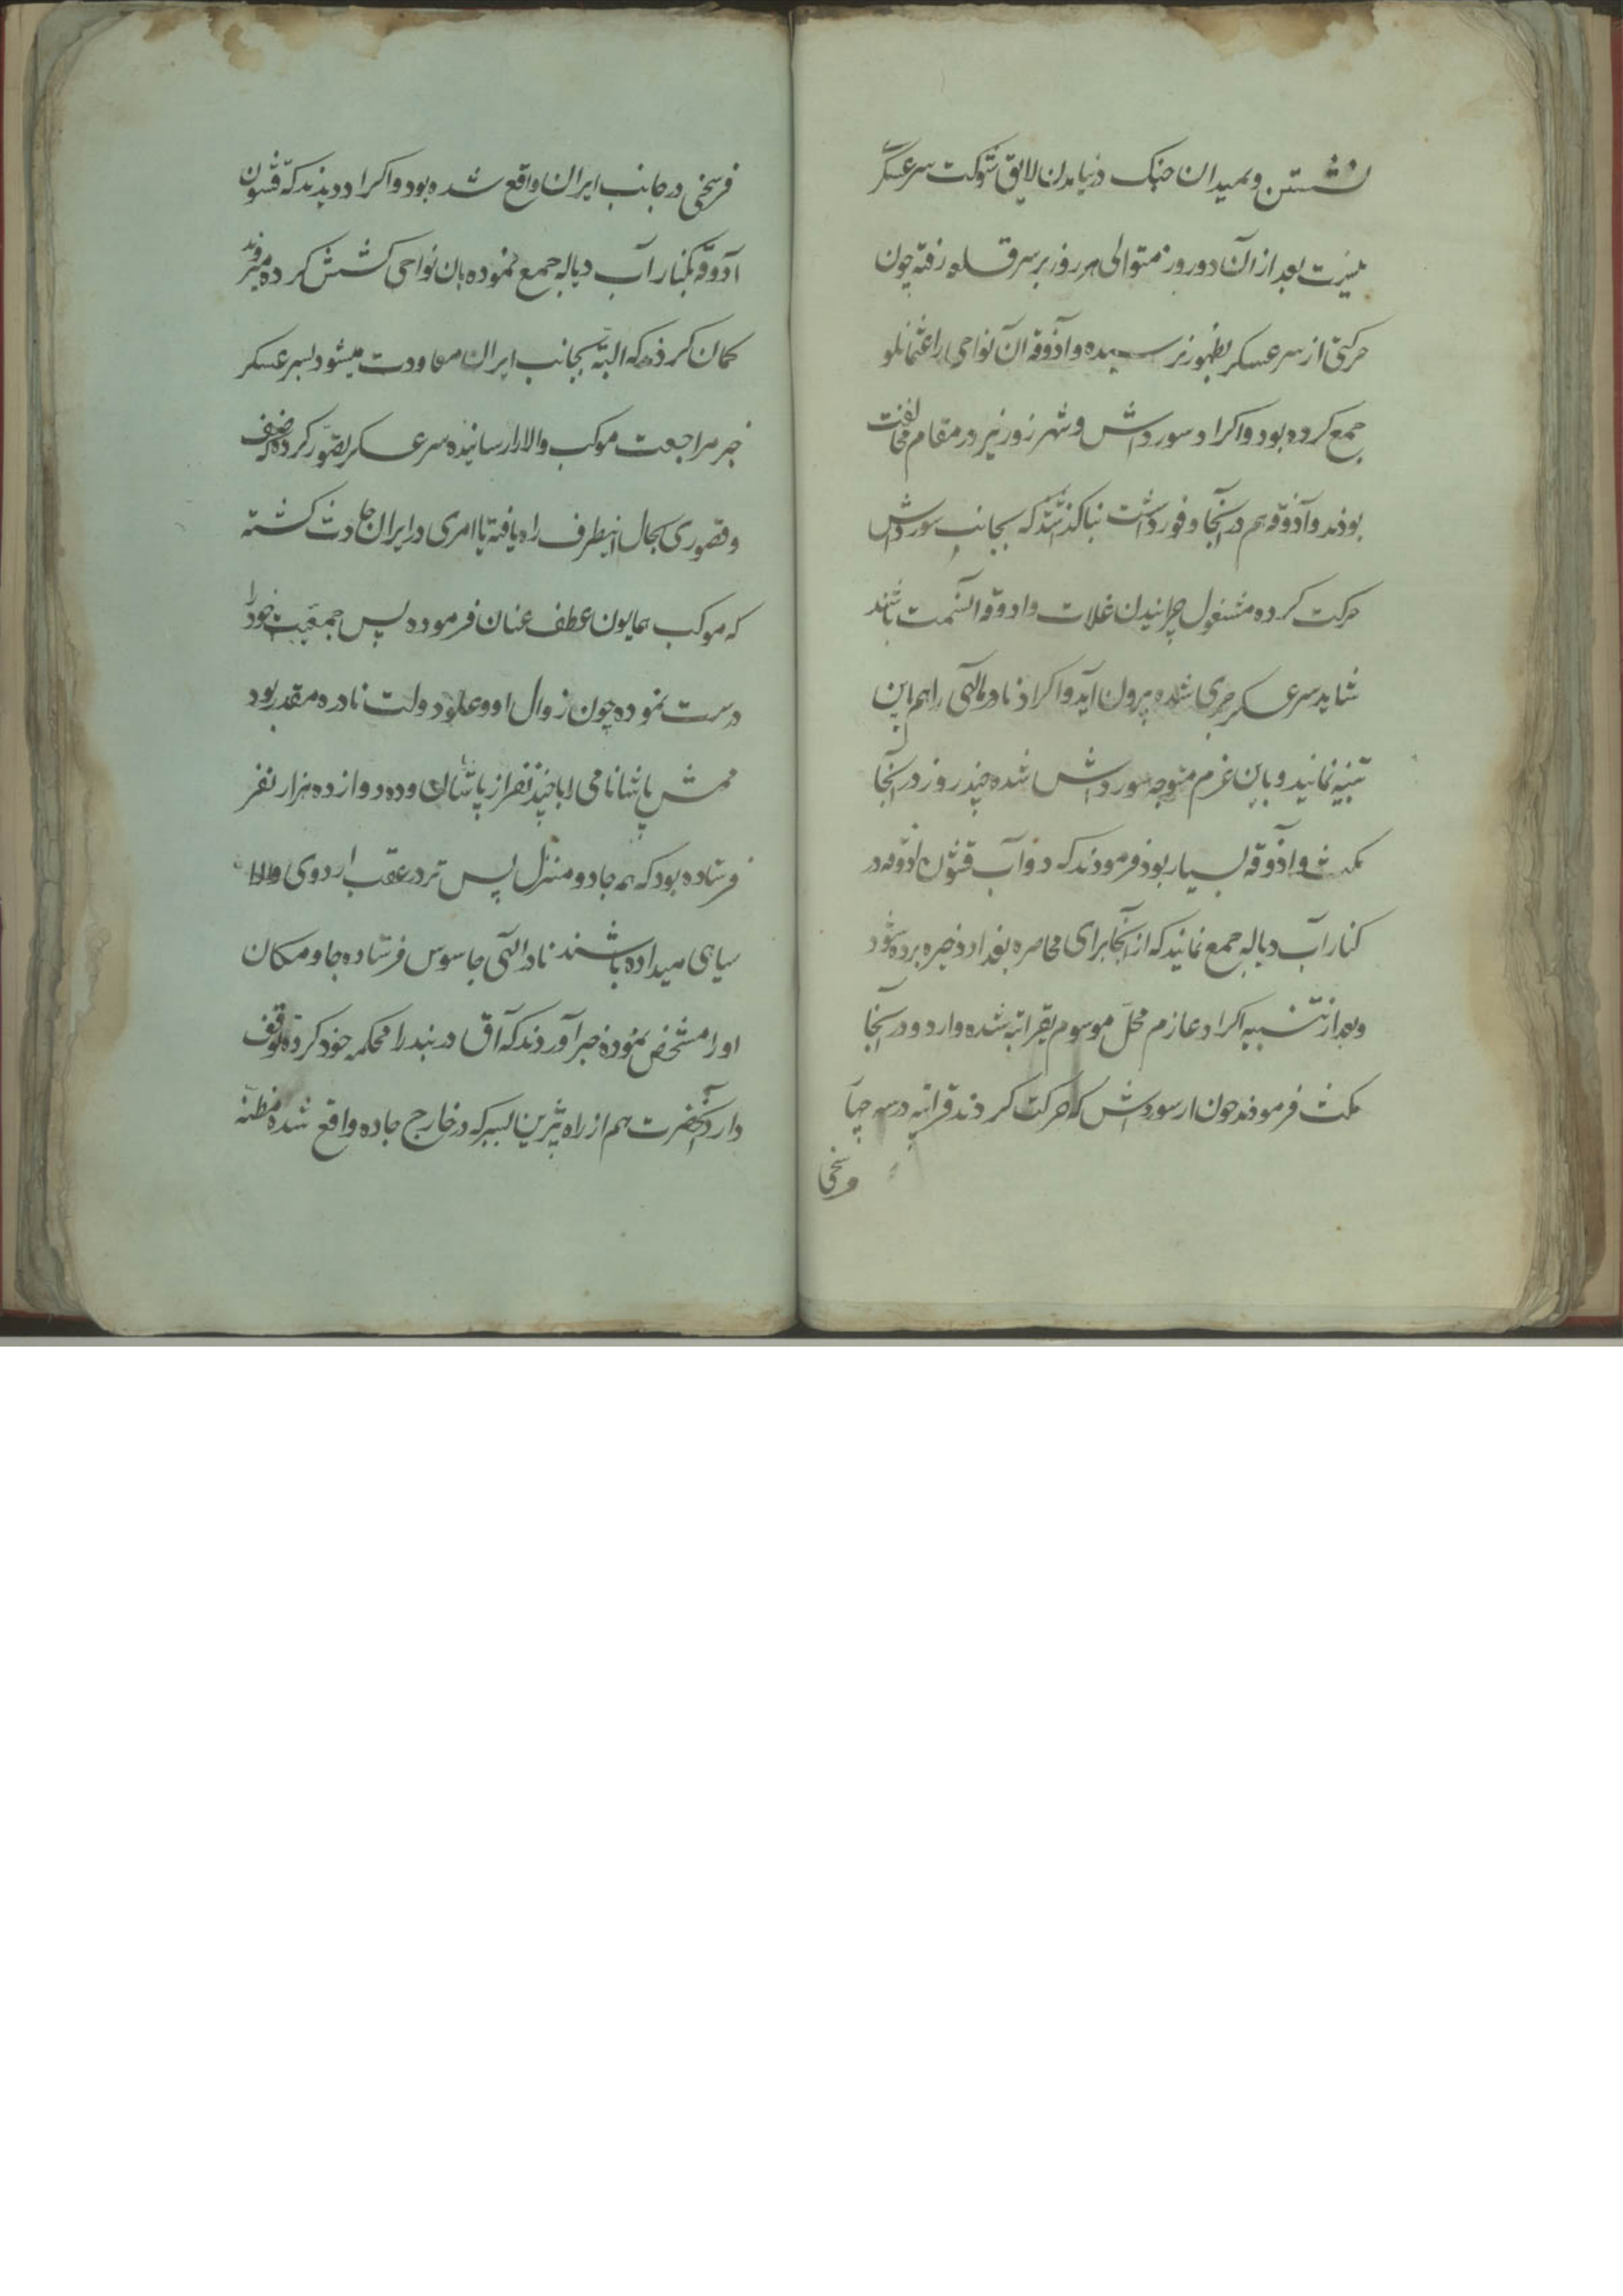 نشستن و بمیدان جنک درنیامدن لایق شوکت سرعسکر
نیست بعد از آن دو روز متوالی هر روز بر سر قلعه رفته چون
حرکتی از سرعسکر بظهور نرسیده و آذوقه آن نواحی را عثمانلو
جمع کرده بود و اکراد سورداش و شهر زور نیز در مقام مخالفت
بودند و آذوقه هم در آنجا وفور داشت بنا کذاشتند که بجانب سورداش
حرکت کرده مشغول چرانیدن غلات و ادوقه آنسمت باشند
شاید سرعسکر جری شده بیرون آید و اکراد نادرالهی را هم باین
تنبیه نمانید و باین عزم متوجه سورداش شده چند روز در آنجا
مکث و اذوقه بسیار بود فرمودند که دوآب قشون اذوقه در
کنار آب دیاله جمع نمایند که از آنجا برای محاصره بغداد ذخیره برده شود
و بعد از تنبیه اکراد عازم محل موسوم بقراتپه شده وارد و در آنجا
مکث فرمودند چون از سورداش که حرکت کردند قراتپه در سه چهار
فرسخی
فرسخی در جانب ایران واقع شده بود و اکراد دیدند که قشون
آذوقه بکنار آب دیاله جمع نموده بان نواحی کشش کرده میروند
کمان کردند که البته بجانب ایران معاودت میشود بسرعسکر
خبر مراجعت موکب والا را رسانیده سرعسکر تصور کرده که ضعف
و قصوری بحال اینطرف راه یافته یا امری در ایران حادث کشته
که موکب همایون عطف عنان فرموده پس جمعیت خود را
درست نموده چون زوال او و علو دولت نادره مقدر بود
ممش پاشا نامی را با چند نفر از پاشایان و ده دوازده هزار نفر
فرستاده بود که همه جا دو منزل پس تر در عقب اردوی والا
سیاهی میداده باشند نادرالهی جاسوس فرستاده جا و مکان
او را مشخص نموده خبر آوردند که آق دربند را محکمه خود کرده توقف
دارد آنحضرت هم از راه که در خارج جاده واقع شده مظنه